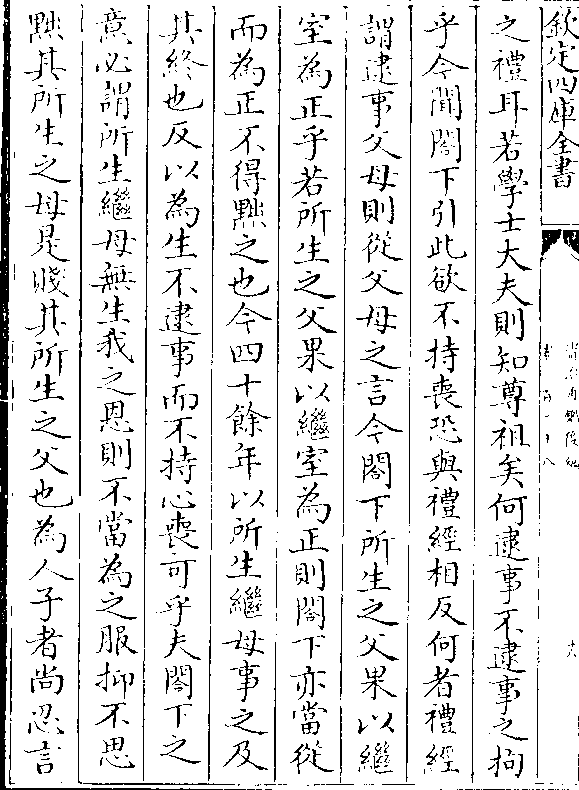 欽定四庫全書
之禮耳若學士大夫則知尊祖矣何逮事不逮事之拘
乎今聞閣下引此欲不持喪恐與禮經相反何者禮經
謂逮事父母則從父母之言今閣下所生之父果以繼
室為正乎若所生之父果以繼室為正則閣下亦當從
而為正不得黜之也今四十餘年以所生繼母事之及
其終也反以為生不逮事而不持心喪可乎夫閣下之
意必謂所生繼母無生我之恩則不當為之服抑不思
黜其所生之母是賤其所生之父也為人子者尚忍言